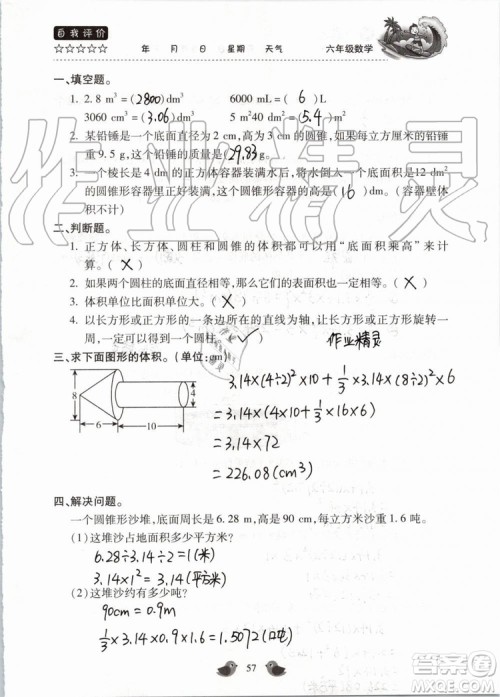 自我评价
☆☆☆☆☆ 年 月 日 星期 天气 六年级数学
一、填空题。
1. 2.8 m³=(2800)dm³ 6000 mL=( 6 )L
3060 cm³=(3.06)dm³ 5 m²40 dm²=(5.4)m²
2. 某铅锤是一个底面直径为2 cm,高为3 cm的圆锥,如果每立方厘米的铅锤
重9.5 g,这个铅锤的质量是(29.83)g。
3. 一个棱长是4 dm的正方体容器装满水后,将水倒入一个底面积是12 dm²
的圆锥形容器里正好装满,这个圆锥形容器的高是( 16 )dm。(容器壁体
积不计)
二、判断题。
1. 正方体、长方体、圆柱和圆锥的体积都可以用“底面积乘高”来计
算。( × )
2. 如果两个圆柱的体积相等,那么它们的表面积也一定相等。( × )
3. 体积单位比面积单位大。( × )
4. 以长方形或正方形的一条边所在的直线为轴,让长方形或正方形旋转一
周,可以得到一个圆柱。( ✓ )
作业精灵
三、求下面图形的体积。(单位:cm)
8 4
6 10
3.14×(4÷2)²×10+1/3×3.14×(8÷2)²×6
=3.14×(4×10+1/3×16×6)
=3.14×72
=226.08(cm³)
四、解决问题。
一个圆锥形沙堆,底面周长是6.28 m,高是90 cm,每立方米沙重1.6吨。
(1)这堆沙占地面积多少平方米?
6.28÷3.14÷2=1(米)
3.14×1²=3.14(平方米)
(2)这堆沙重多少吨?
90cm=0.9m
1/3×3.14×0.9×1.6=1.5072(吨)
57
作业精灵